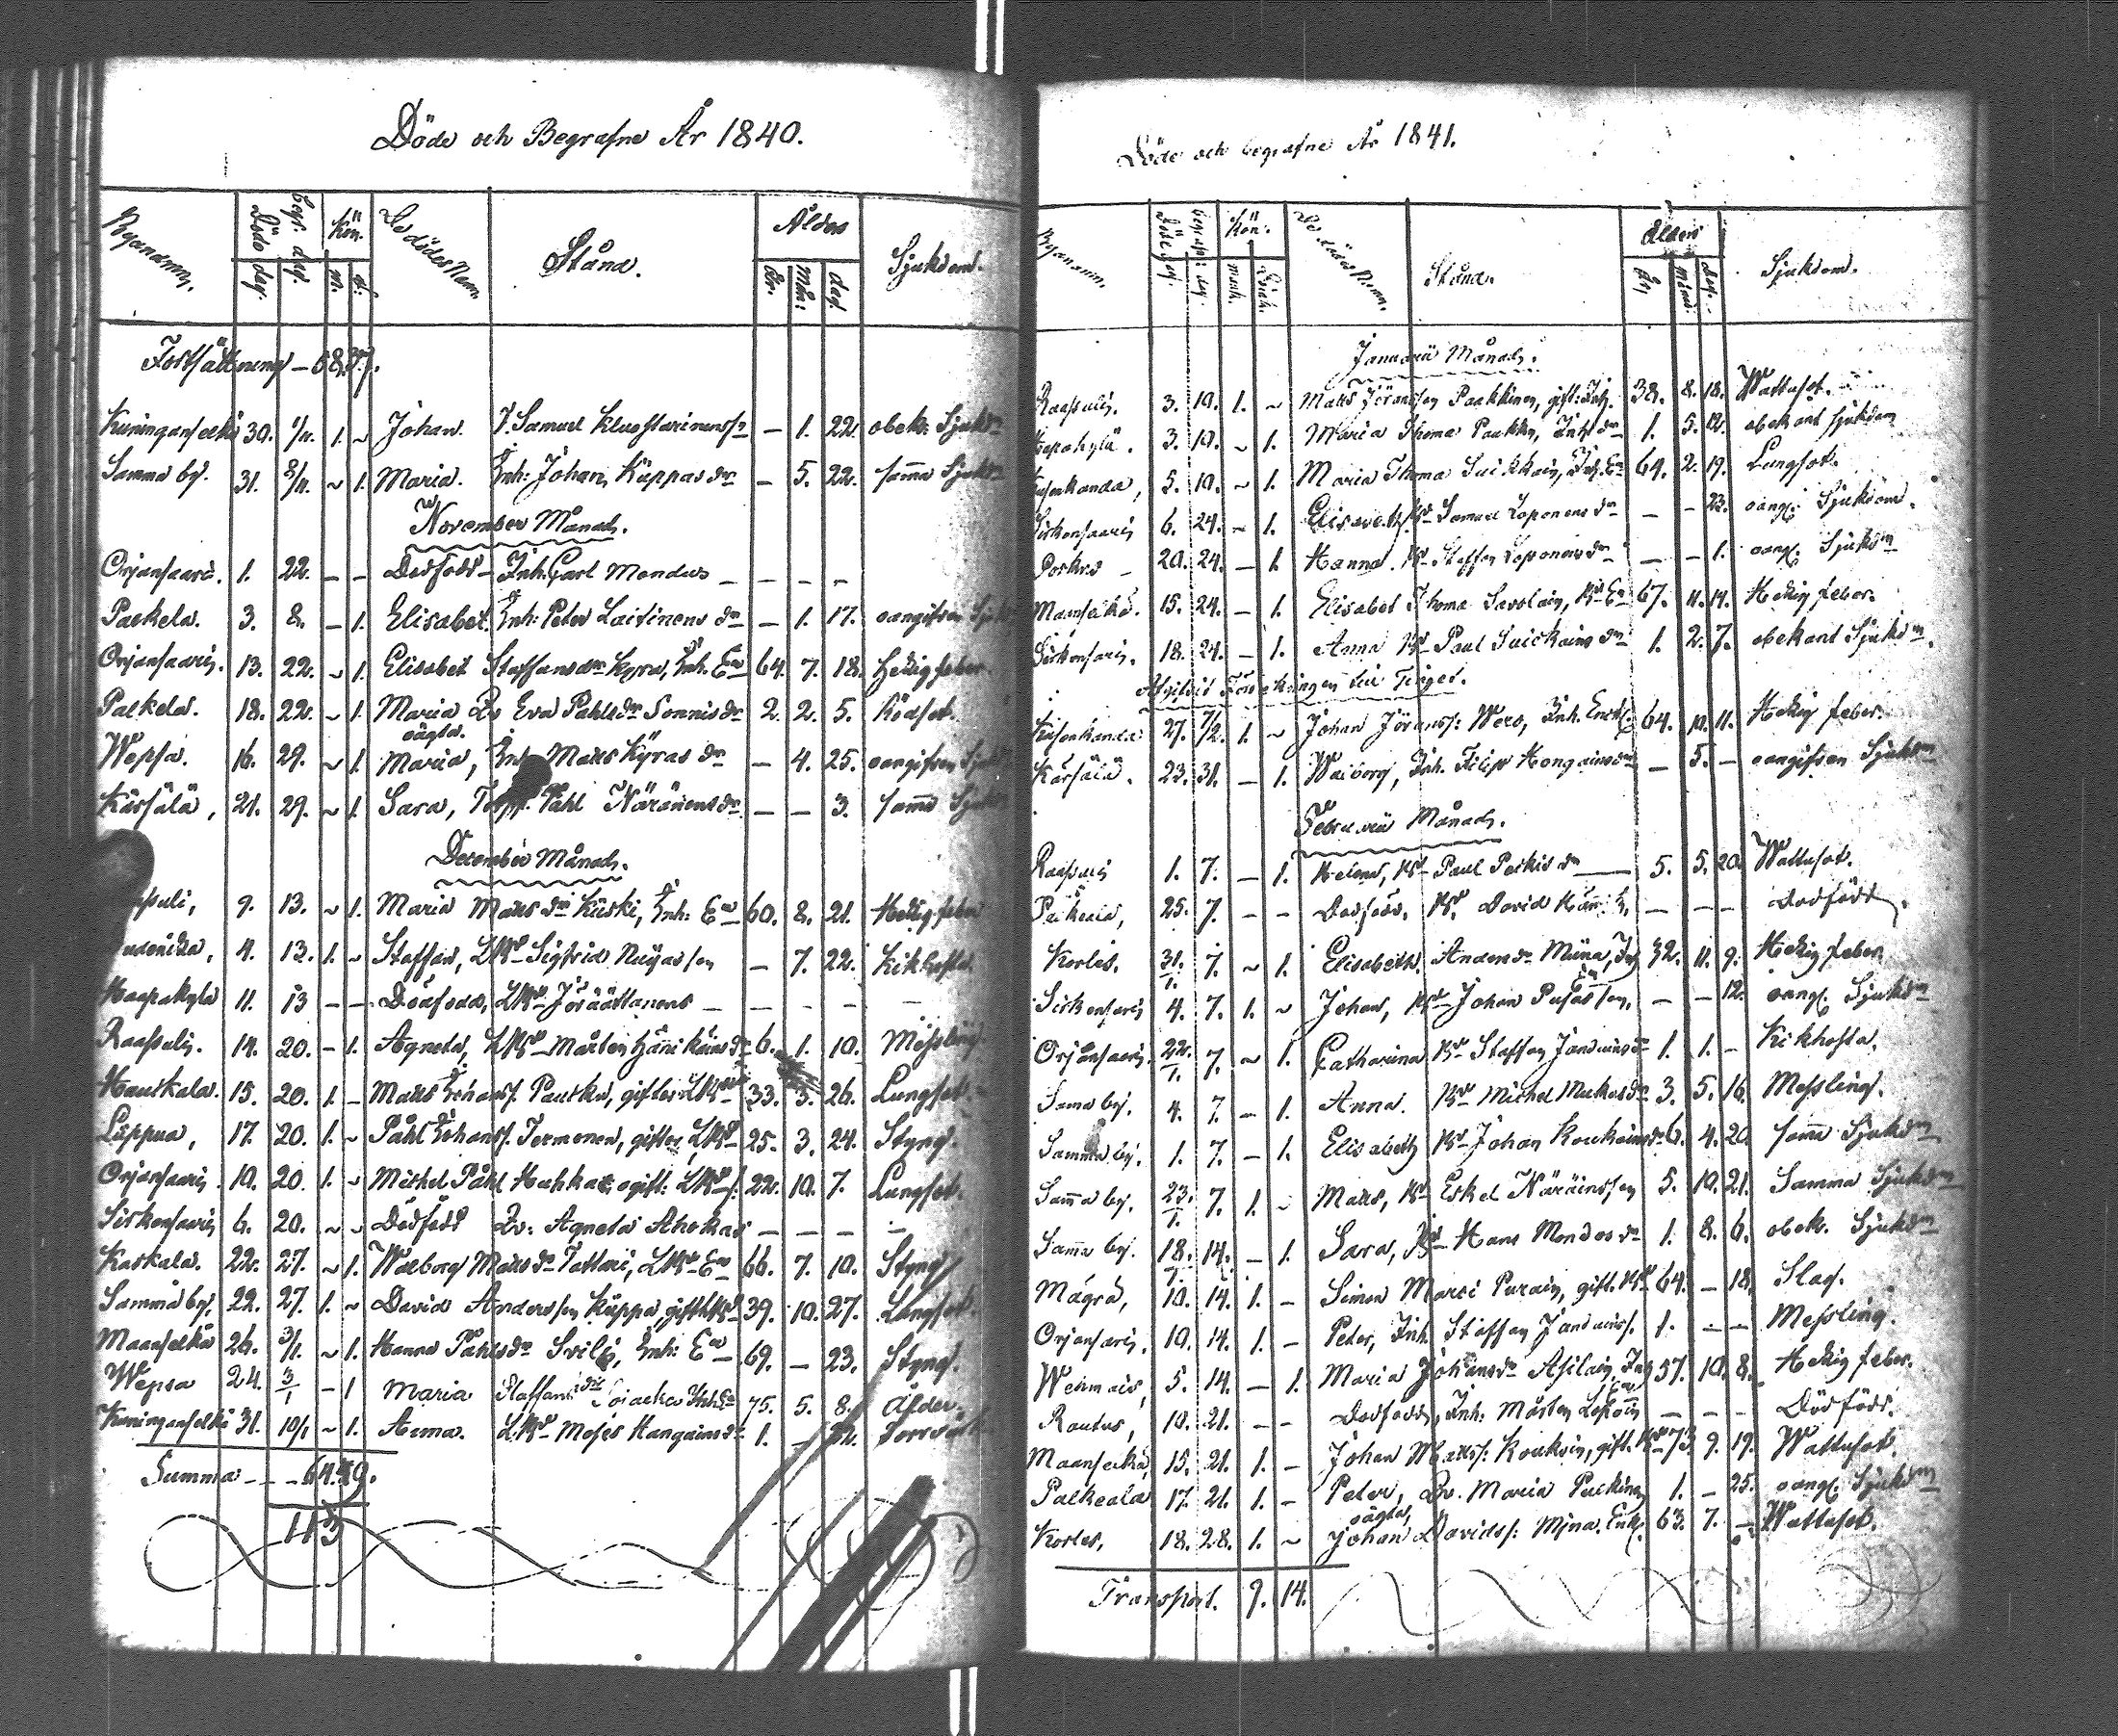 Döde och Begrafne År 1840.
Byanamn. Döde dag. Begr. dag. Kön. m. q: De dödes Namn. Stånd. Ålder År. Mån: dag. Sjukdom.
Fortsättning — 58. 37.
Kuninganselkä 30. 1/11. 1. ~ Johan. I. Samuel — 1. 22. obek: Sjukdm
Samma by. 31. 8/11. ~ 1. Maria. Inh: Johan Küppas dr — 5. 22. samma Sjukdm
November Månad.
Orjansaari. 1. 22. — — Dödfödd — Inh. Carl Mondus — — — —
Palkela. 3. 8. — 1. Elisabet. Inh: Peter Laitinens dr — 1. 17. oangifven Sjuk
Orjansaari. 13. 22. ~ 1. Elisabet Staffansdr Kyrö, Inh. Ea 64. 7. 18. Hetsig feber.
Palkela. 18. 22. ~ 1. Maria Qv Eva Påhlsdr Sonnis dr 2. 2. 5. Rödsot.
oägta.
Wepsa. 16. 29. ~ 1. Maria, Inh Matts Kyrös dr — 4. 25. oangifven Sjukd
Kärsälä, 21. 29. ~ 1. Sara, Torp. Påhl Näränens dr — — 3. samma Sjuk
December Månad.
9. 13. ~ 1. Maria Matts dr Kiiski, Inh: Ea 60. 8. 21. Hetsig feber
4. 13. 1. ~ Staffan, LBd Sigfrid — 7. 22. Kikhosta.
Haapakylä 11. 13 — — Dödfödd, LBd — — — —
Raasuli. 14. 20. — 1. Agneta, LBd Mårten Hännikäins dr 6. 1. 10. Messling.
Hauskala. 15. 20. 1. — Matts Johanss. Paukku, gifter LBd 33. 3. 26. Lungsot.
Lüppua, 17. 20. 1. ~ Påhl Johanss. Termonen, gifter LBd 25. 3. 24. Styng.
Orjansaari. 10. 20. 1. ~ Michel Påhl Huhka ogift: LBd s. 22. 10. 7. Lungsot.
Sirkensaari 6. 20. ~ ~ Dödfödd Qv: Agneta Ahokas — — — —
Kaskala. 22. 27. ~ 1. Walborg Matts dr Tattari, LBd Ea 66. 7. 10. Styng
Samma by. 22. 27. 1. ~ David Andersson Küppa, gift LBd 39. 10. 27. Lungsot.
Maanselkä 26. 3/1. ~ 1. Hanna Påhlsdr Inh: Ea 69. — 23. Styng.
Wepsa 24. 3/1 — 1 Maria Staffans dr Inh Ea 75. 5. 8. Ålder.
Kuninganselkä 31. 10/1 ~ 1. Anna. LBd Moses Hangains dr 1. —
Summa — — 64. 49.
113
Döde och begrafne År 1841.
Byanamn. Döde dag. begrafn: dag. Kön. mank. Qvink. De dödes Namn. Stånd. Ålder År Månd. dag. Sjukdom.
Januarii Månad.
Raasuli. 3. 10. 1. ~ Matts Jöransson Paakkinen, gift: Inh. 38. 8. 18. Wattusot.
Haapakylä. 3. 10. ~ 1. Maria Thoma Paukku, Inh dr 1. 5. 12. obekant sjukdom
Kusenkanda, 5. 10. ~ 1. Maria Thoma Suikkain, Inh. Ea 64. 2. 19. Lungsot.
Sirkensaari 6. 24. ~ 1. Elisabeth, Bd Samuel Loponens dr — — 23. oangf: Sjukdom.
Porkus — 20. 24. — 1. Hanna. Bd Staffan Loponens dr — — 1. oangf. Sjukdm
Maanselkä. 15. 24. — 1. Elisabet Thoma Savolain, Bd Ea 67. 11. 14. Hetsig feber.
Sirkensaari. 18. 24. — 1. Anna Bd Paul Suickains dr 1. 2. 7. obekant Sjukdm.
Kusenkanda 27. 7/2. 1. ~ Johan Jöranss: Wero, Inh. Enkl: 64. 10. 11. Hetsig feber.
Kärsälä. 23. 31. — 1. Walborg, Inh. Filip Hongains dr — 5. — oangifven Sjukdm
Februarii Månad.
Raasuli 1. 7. — 1. Helena, Bd Paul Peckis dr — 5. 5. 20. Wattusot.
Palkeala, 25. 7. — — Dödfödd, Bd. David — — — dödfödd
Korles. 31/1. 7. ~ 1. Elisabeth, Anders dr Müna, Inh 32. 11. 9. Hetsig feber.
Sirkensaari 4. 7. 1. ~ Johan, Bd Johan Pusas son, — — 12. oangf. Sjukdm
Orjansaari. 22/1. 7. ~ 1. Catharina Bd Staffan Jandains dr 1. 1. — Kikhosta.
Sama by. 4. 7. — 1. Anna. Bd Michel Muckos dr 3. 5. 16. Messling.
Samma by. 1. 7. — 1. Elisabeth Bd Johan Koukoins dr 6. 4. 20 samma Sjukdm
Samma by. 23/1. 7. 1. ~ Matts, Bd Eskel Näräinsson 5. 10. 21. Samma Sjukdm
Samma by. 18/1. 14. — 1. Sara, Bd Hans Mondos dr 1. 8. 6. obek. Sjukdm
Mägrä, 10. 14. 1. — Simon Marci Purain, gift. Bd 64. — 18. Slag.
Orjansaari. 10. 14. 1. — Peter, Inh Staffan Jandains s. 1. — — Messling.
Wehmais, 5. 14. — 1. Maria Johans dr Asilain, Inh 57. 10. 8. Hetsig feber.
Rautus, 10. 21. — — Dödfödd, Inh. Mårten — — — Dödfödd.
Maanselkä 15. 21. 1. — Johan Matts s: Koukoin, gift. Bd 73. 9. 19. Wattusot.
Palkeala 17. 21. 1. — Peter, Qv. Maria Puckin 1. — 25. oangf. Sjukdm
oägta,
Korles, 18. 28. 1. ~ Johan Davids s: Mjna, Enkl. 63. 7. — Wattusot.
Transport. 9. 14.